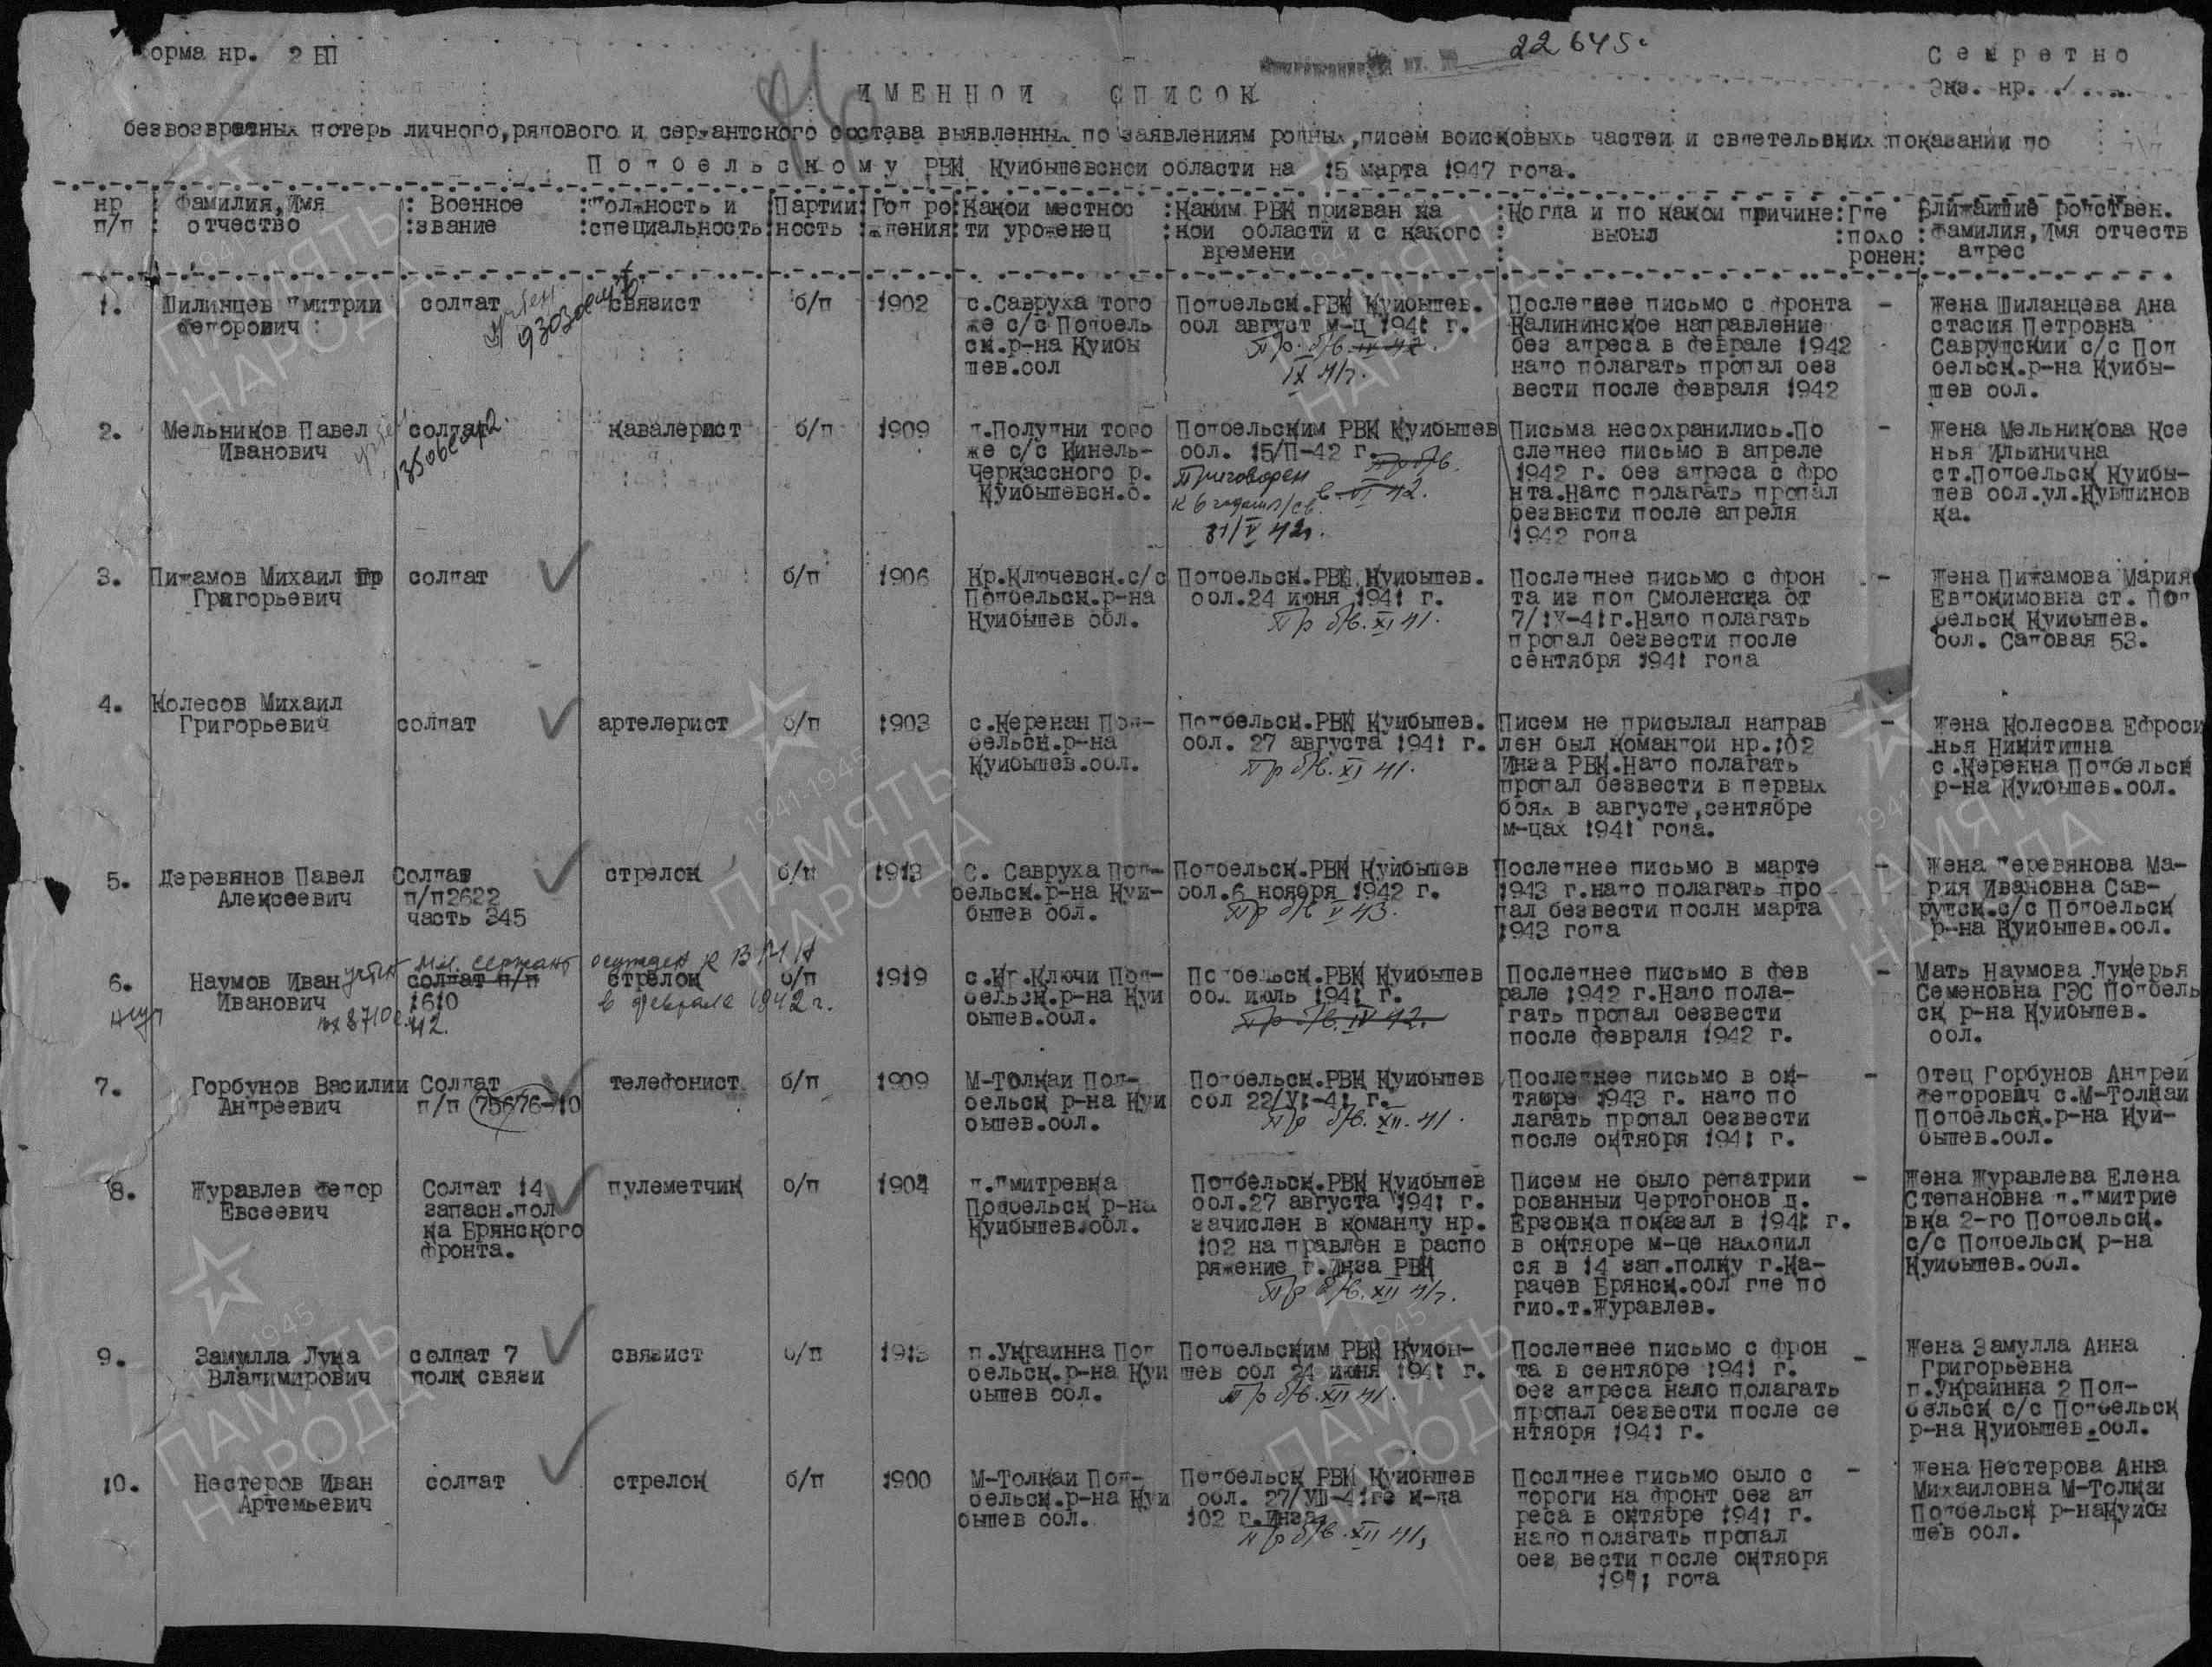 орма нр. 2 БП
22645с
Секретно
Экз. нр. 1
ИМЕННОИ СПИСОК
безвозвратных потерь личного,рядового и сержантского состава выявленных по заявлениям родных,писем воисковыхь частеи и свидетельских показании по
Подбельскому РВК Куибышевскои области на 15 марта 1947 года.
нр п/п : Фамилия,Имя отчество : Военное звание : Должность и специальность : Партииность : Год рождения : Какои местности уроженец : Каким РВК призван какои области и с какого времени : Когда и по какои причине выбыл : Где похоронен : Ближаишие родствен. Фамилия,Имя отчеств адрес
1. Шиланцев Дмитрии Федорович
солдат
связист
б/п
1902
с.Савруха того
же с/с Подбель
ск.р-на Куибы
шев.обл
Подбельск.РВК Куибышев.
обл август м-ц 1941 г.
IX 41г.
Последнее письмо с фронта
Калининское направление
без адреса в феврале 1942
надо полагать пропал без
вести после февраля 1942
-
Жена Шиланцева Ана
стасия Петровна
Саврудскии с/с Под
бельск.р-на Куибы-
шев обл.
2. Мельников Павел
Иванович
солдат
кавалерист
б/п
1909
д.Полудни того
же с/с Кинель-
Черкасского р.
Куибышевск.о.
Подбельским РВК Куибышев
обл. 15/П-42 г.
Приговорен
31/V 42г.
Письма несохранились.По
следнее письмо в апреле
1942 г. без адреса с фро
нта.Надо полагать пропал
безвести после апреля
1942 года
-
Жена Мельникова Ксе
нья Ильинична
ст.Подбельск Куибы-
шев обл.ул.Кувшинов
ка.
3. Пижамов Михаил Гр
Григорьевич
солдат
б/п
1906
Кр.Ключевск.с/с
Подбельск.р-на
Куибышев обл.
Подбельск.РВК Куибышев.
обл.24 июня 1941 г.
пр б/в. XI 41.
Последнее письмо с фрон
та из под Смоленска от
7/IX-41г.Надо полагать
пропал безвести после
сентября 1941 года
-
Жена Пижамова Мария
Евдокимовна ст. Под
бельск Куибышев.
обл. Садовая 53.
4. Колесов Михаил
Григорьевич
солдат
артелерист
б/п
1903
с.Керенан Под-
бельск.р-на
Куибышев.обл.
Подбельск.РВК Куибышев.
обл. 27 августа 1941 г.
пр б/в. XI 41.
Писем не присылал направ
лен был командой нр.102
Инза РВК.Надо полагать
пропал безвести в первых
боях в августе,сентябре
м-цах 1941 года.
-
Жена Колесова Ефроси
нья Никитична
с.Керенна Подбельск
р-на Куибышев.обл.
5. Деревянов Павел
Алексеевич
Солдат
п/п2622
часть 345
стрелок
б/п
1913
С. Савруха Под-
бельск.р-на Куи-
бышев обл.
Подбельск.РВК Куибышев
обл.6 ноября 1942 г.
пр б/в V 43.
Последнее письмо в марте
1943 г.надо полагать про
пал безвести послн марта
1943 года
-
Жена Деревянова Ма-
рия Ивановна Сав-
рудск.с/с Подбельск
р-на Куибышев.обл.
6. Наумов Иван
Иванович
мл. сержант
солдат п/п
1610
осужден к ВМН
стрелок
в феврале 1942 г.
б/п
1919
с.Кр.Ключи Под-
бельск.р-на Куи
бышев.обл.
Подбельск.РВК Куибышев
обл июль 1941 г.
пр б/в. IV 42.
Последнее письмо в фев
рале 1942 г.Надо пола-
гать пропал безвести
после февраля 1942 г.
-
Мать Наумова Лукерья
Семеновна ГЭС Подбель
ск р-на Куибышев.
обл.
7. Горбунов Василии
Андреевич
Солдат
п/п 75676-10
телефонист
б/п
1909
М-Толкаи Под-
бельск р-на Куи
бышев.обл.
Подбельск.РВК Куибышев
обл 22/VI-41 г.
пр б/в. XII. 41.
Последнее письмо в ок-
тябре 1943 г. надо по
лагать пропал безвести
после октября 1941 г.
-
Отец Горбунов Андреи
Федорович с.М-Толкаи
Подбельск.р-на Куи-
бышев.обл.
8. Журавлев Федор
Евсеевич
Солдат 14
запасн.пол
ка Брянского
фронта.
пулеметчик
б/п
1904
д.Дмитревка
Подбельск р-на
Куибышев.обл.
Подбельск.РВК Куибышев
обл.27 августа 1941 г.
зачислен в команду нр.
102 на правлен в распо
ряжение г.Инза РВК
пр б/в. XII 41г.
Писем не было репатрии
рованныи Чертогонов д.
Ерзовка показал в 1941 г.
в октябре м-це находил
ся в 14 зап.полку г.Ка-
рачев Брянск.обл где по
гио.т.Журавлев.
-
Жена Журавлева Елена
Степановна д.Дмитрие
вка 2-го Подбельск.
с/с Подбельск р-на
Куибышев.обл.
9. Замулла Лука
Владимирович
солдат 7
полк связи
связист
б/п
1913
п.Украинка Под
бельск.р-на Куи
бышев обл.
Подбельским РВК Куибы-
шев обл 24 июня 1941 г.
пр б/в. XII 41.
Последнее письмо с фрон
та в сентябре 1941 г.
без адреса надо полагать
пропал безвести после се
нтября 1941 г.
-
Жена Замулла Анна
Григорьевна
п.Украинка 2 Под-
бельск с/с Подбельск
р-на Куибышев.обл.
10. Нестеров Иван
Артемьевич
солдат
стрелок
б/п
1900
М-Толкаи Под-
бельск.р-на Куи
бышев обл.
Подбельск РВК Куибышев
обл. 27/УШ-41го к-да
102 г.Инза
пр б/в. XII 41г
Послднее письмо было с
дороги на фронт без ад
реса в октябре 1941 г.
надо полагать пропал
без вести после октября
1941 года
-
Жена Нестерова Анна
Михаиловна М-Толкаи
Подбельск р-наКуибы
шев обл.
1941-1945
ПАМЯТЬ
НАРОДА